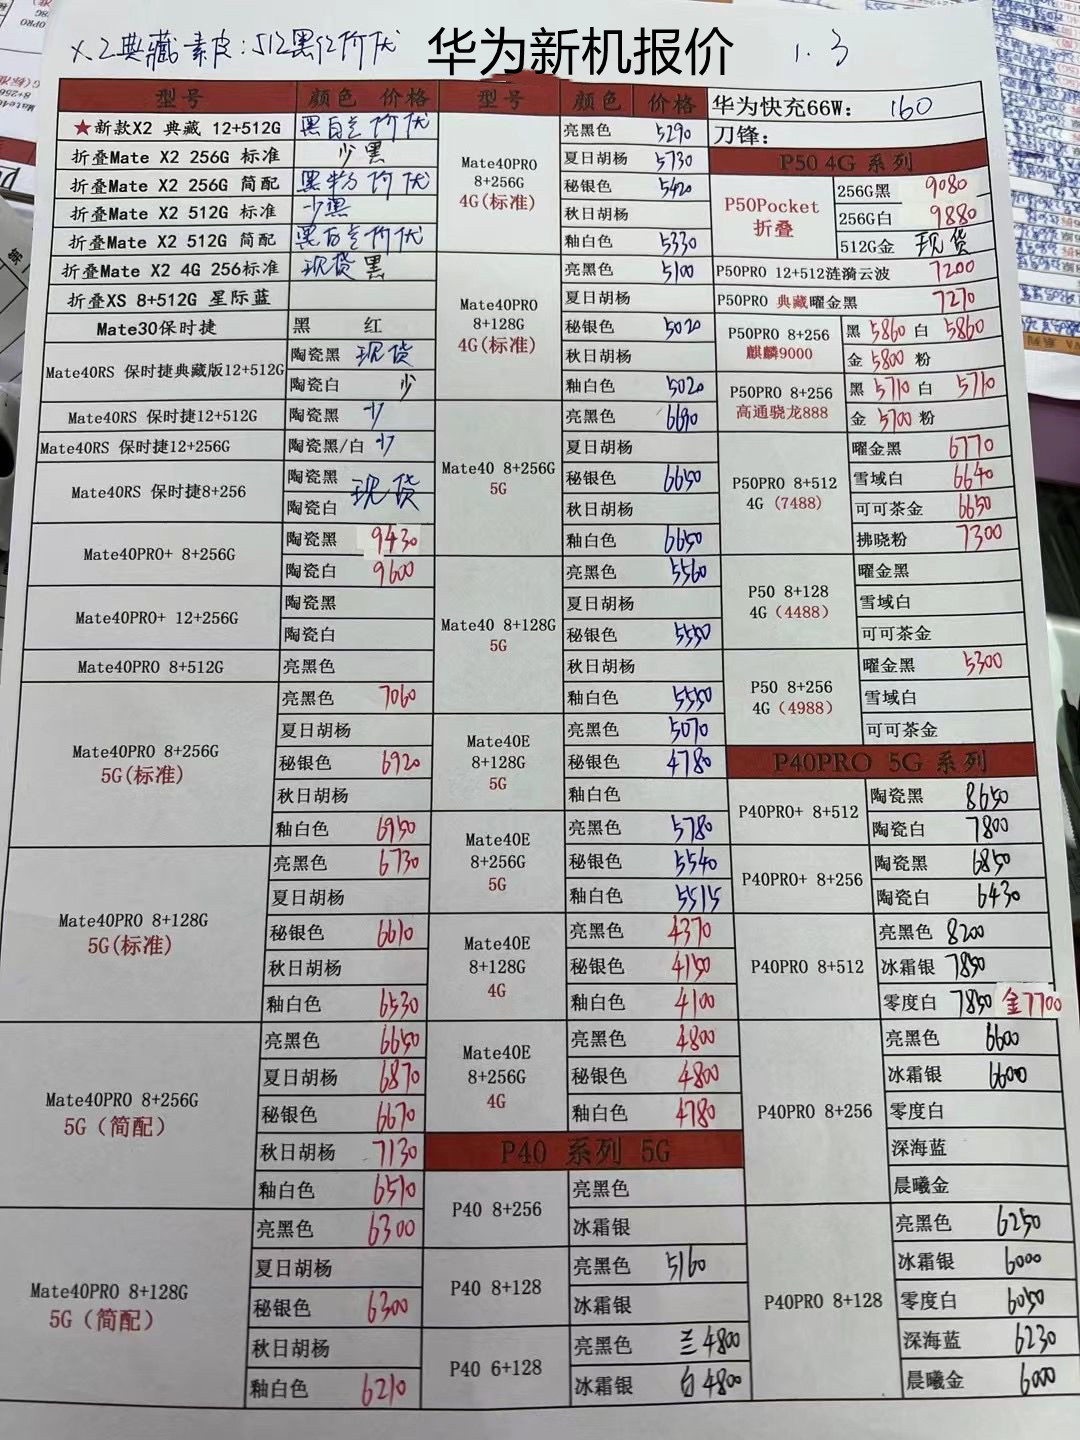 X2典藏素皮:512黑红价优 华为新机报价 1.3
型号 颜色 价格
★新款X2 典藏 12+512G 黑白白价优
折叠Mate X2 256G 标准 少黑
折叠Mate X2 256G 简配 黑粉价优
折叠Mate X2 512G 标准 少黑
折叠Mate X2 512G 简配 价优
折叠Mate X2 4G 256标准 现货黑
折叠XS 8+512G 星际蓝
Mate30保时捷 黑 红
Mate40RS 保时捷典藏版12+512G
陶瓷黑 现货
陶瓷白 少
Mate40RS 保时捷12+512G 陶瓷黑 少
Mate40RS 保时捷12+256G 陶瓷黑/白 少
Mate40RS 保时捷8+256
陶瓷黑 现货
陶瓷白
Mate40PRO+ 8+256G
陶瓷黑 9430
陶瓷白 9600
Mate40PRO+ 12+256G
陶瓷黑
陶瓷白
Mate40PRO 8+512G 亮黑色
Mate40PRO 8+256G
5G(标准)
亮黑色 7060
夏日胡杨
秘银色 6920
秋日胡杨
釉白色 6950
Mate40PRO 8+128G
5G(标准)
亮黑色 6730
夏日胡杨
秘银色 6610
秋日胡杨
釉白色 6530
Mate40PRO 8+256G
5G（简配）
亮黑色 6650
夏日胡杨 6870
秘银色 6670
秋日胡杨 7130
釉白色 6510
Mate40PRO 8+128G
5G（简配）
亮黑色 6300
夏日胡杨
秘银色 6300
秋日胡杨
釉白色 6210
型号 颜色 价格
Mate40PRO
8+256G
4G(标准)
亮黑色 5290
夏日胡杨 5730
秘银色 5420
秋日胡杨
釉白色 5330
Mate40PRO
8+128G
4G(标准)
亮黑色 5100
夏日胡杨
秘银色 5020
秋日胡杨
釉白色 5020
Mate40 8+256G
5G
亮黑色 6690
夏日胡杨
秘银色 6650
秋日胡杨
釉白色 6650
Mate40 8+128G
5G
亮黑色 5560
夏日胡杨
秘银色 5550
秋日胡杨
釉白色 5550
Mate40E
8+128G
5G
亮黑色 5070
秘银色 4780
釉白色
Mate40E
8+256G
5G
亮黑色 5780
秘银色 5540
釉白色 5515
Mate40E
8+128G
4G
亮黑色 4370
秘银色 4150
釉白色 4100
Mate40E
8+256G
4G
亮黑色 4800
秘银色 4800
釉白色 4780
P40 系列 5G
P40 8+256
亮黑色
冰霜银
P40 8+128
亮黑色 5160
冰霜银
P40 6+128
亮黑色 兰4800
冰霜银 白4800
华为快充66W: 160
刀锋:
P50 4G 系列
P50Pocket
折叠
256G黑 9080
256G白 9880
512G金 现货
P50PRO 12+512涟漪云波 7200
P50PRO 典藏曜金黑 7270
P50PRO 8+256
麒麟9000
黑 5860 白 5860
金 5800 粉
P50PRO 8+256
高通骁龙888
黑 5710 白 5710
金 5700 粉
P50PRO 8+512
4G（7488）
曜金黑 6770
雪域白 6640
可可茶金 6650
拂晓粉 7300
P50 8+128
4G（4488）
曜金黑
雪域白
可可茶金
P50 8+256
4G（4988）
曜金黑 5300
雪域白
可可茶金
P40PRO 5G 系列
P40PRO+ 8+512
陶瓷黑 8650
陶瓷白 7800
P40PRO+ 8+256
陶瓷黑 6850
陶瓷白 6430
P40PRO 8+512
亮黑色 8200
冰霜银 7850
零度白 7850 金7700
P40PRO 8+256
亮黑色 6600
冰霜银 6600
零度白
深海蓝
晨曦金
P40PRO 8+128
亮黑色 6250
冰霜银 6000
零度白 6050
深海蓝 6230
晨曦金 6000